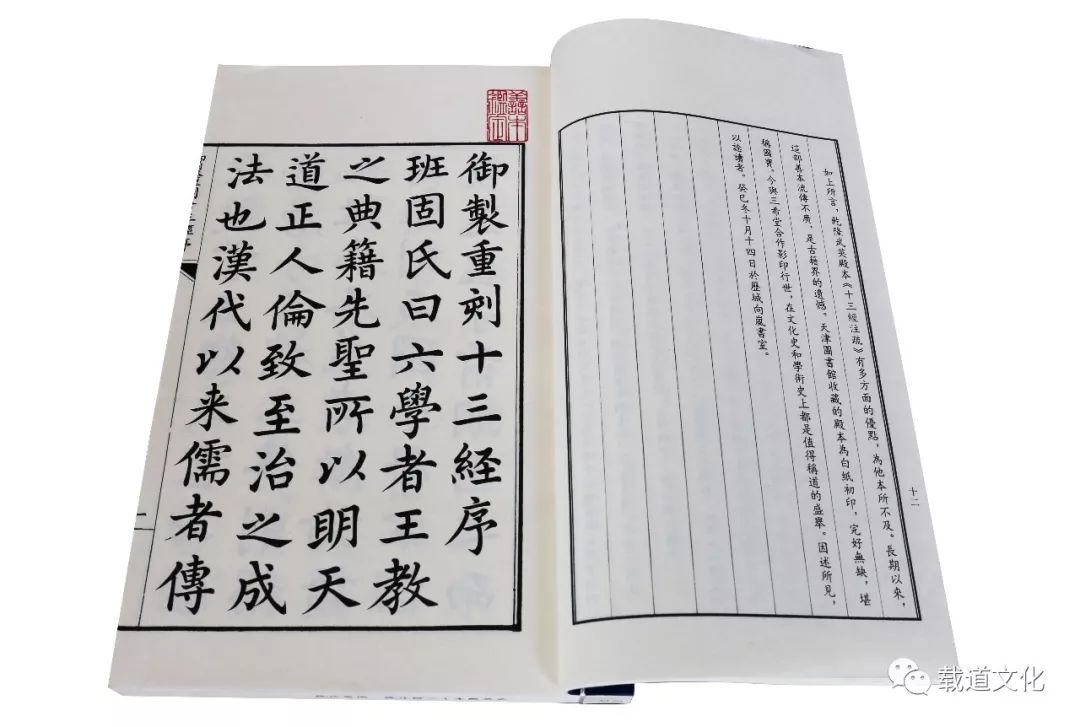 如上所言，乾隆武英殿本《十三經注疏》有多方面的優點，為他本所不及。長期以來，
這部善本流傳不廣，是古籍界的遺憾。天津圖書館收藏的殿本為白紙初印，完好無缺，堪
稱國寶。今與三希堂合作影印行世，在文化史和學術史上都是值得稱道的盛舉。因述所見，
以諗讀者。癸巳冬十月十四日於歷城向嵐書室。
十二
善本
御製重刻十三経序
班固氏曰六學者王教
之典籍先聖所以明天
道正人倫致至治之成
法也漢代以来儒者傳
载道文化